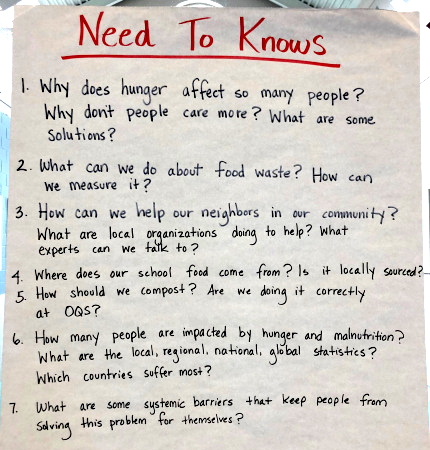 Need To Knows
1. Why does hunger affect so many people?
Why don't people care more? What are some
solutions?
2. What can we do about food waste? How can
we measure it?
3. How can we help our neighbors in our community?
What are local organizations doing to help? What
experts can we talk to?
4. Where does our school food come from? Is it locally sourced?
5. How should we compost? Are we doing it correctly
at OQS?
6. How many people are impacted by hunger and malnutrition?
What are the local, regional, national, global statistics?
Which countries suffer most?
7. What are some systemic barriers that keep people from
solving this problem for themselves?